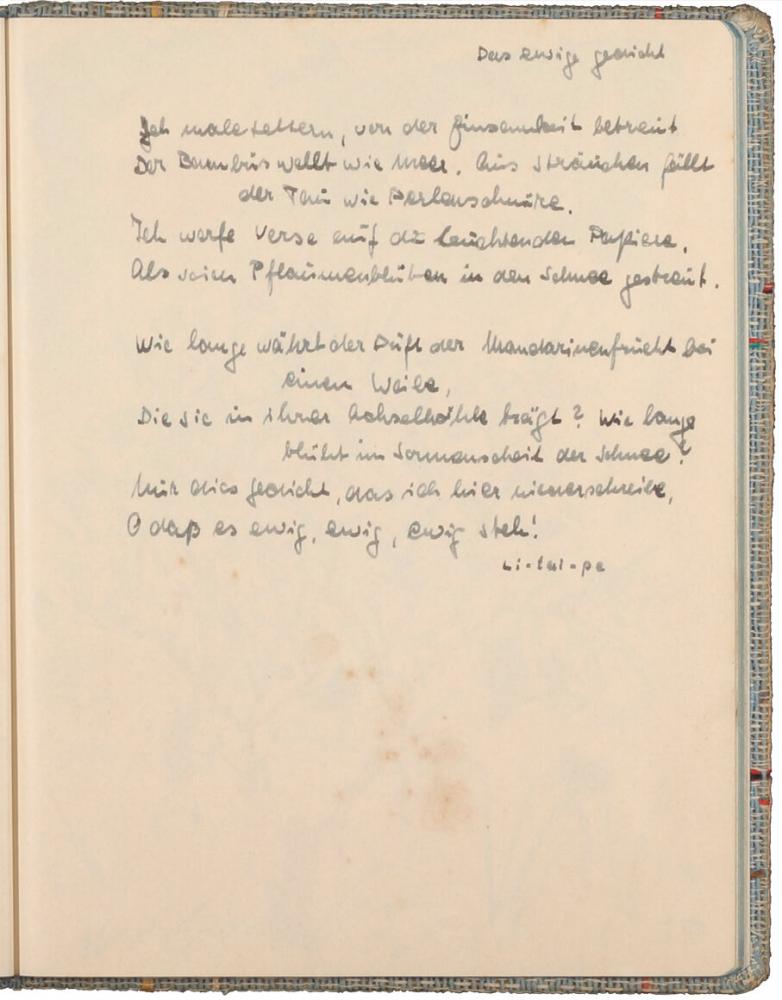 Das ewige Gedicht
Ich male Lettern, von der Einsamkeit betreut
Der Bambus wellt wie Meer. Aus Sträuchen fällt
der Tau wie Perlenschnüre.
Ich werfe Verse auf die leuchtenden Papiere,
Als seien Pflaumenblüten in den Schnee gestreut.
Wie lange währt der Duft der Mandarinenfrucht bei
einem Weibe,
Die sie in ihrer Achselhöhle trägt? Wie lange
blüht im Sonnenscheit der Schnee?
Nur dies Gedicht, das ich hier niederschreibe,
O daß es ewig, ewig, ewig steh!
Li-tai-pe